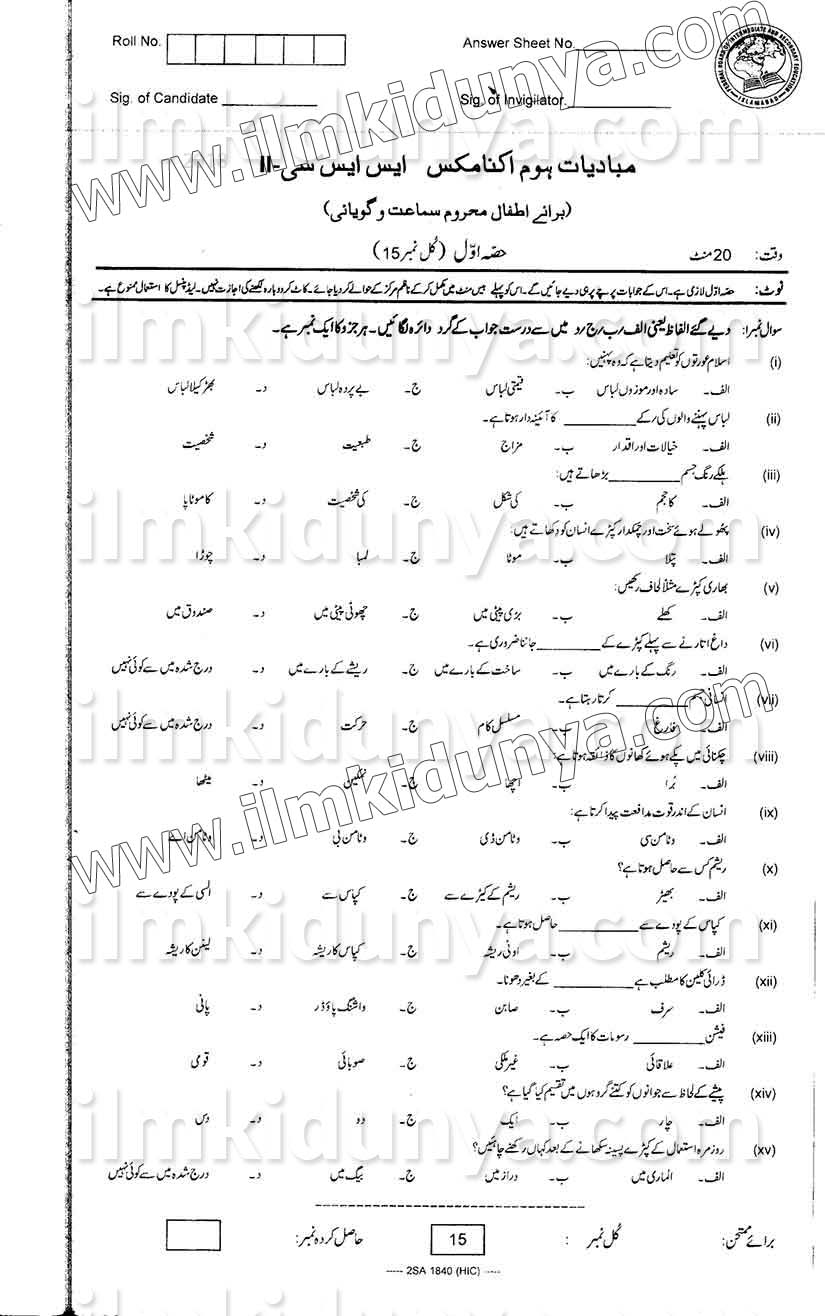 Roll No. Answer Sheet No.
Sig. of Candidate Sig. of Invigilator.
FEDERAL BOARD OF INTERMEDIATE AND SECONDARY EDUCATION ISLAMABAD
www.ilmkidunya.com
مبادیات ہوم اکنامکس ایس ایس سی-II
(برائے اطفال محروم سماعت و گویائی)
وقت: 20 منٹ حصہ اوّل (کُل نمبر 15)
نوٹ: حصہ اوّل لازمی ہے۔ اس کے جوابات پرچے پر ہی دیے جائیں گے۔ اس کو پہلے بیس منٹ میں مکمل کر کے ناظم مرکز کے حوالے کر دیا جائے۔ کاٹ کر دوبارہ لکھنے کی اجازت نہیں۔ لیڈ پنسل کا استعمال ممنوع ہے۔
سوال نمبر۱: دیے گئے الفاظ یعنی الف/ب/ج/د میں سے درست جواب کے گرد دائرہ لگائیں۔ ہر جزو کا ایک نمبر ہے۔
(i) اسلام عورتوں کو تعلیم دیتا ہے کہ وہ پہنیں:
الف۔ سادہ اور موزوں لباس ب۔ قیمتی لباس ج۔ بے پردہ لباس د۔ بھڑکیلا لباس
(ii) لباس پہننے والوں کی/کے __________ کا آئینہ دار ہوتا ہے۔
الف۔ خیالات اور اقدار ب۔ مزاج ج۔ طبعیت د۔ شخصیت
(iii) ہلکے رنگ جسم __________ بڑھاتے ہیں:
الف۔ کا حجم ب۔ کی شکل ج۔ کی شخصیت د۔ کا موٹاپا
(iv) پھولے ہوئے سخت اور چمکدار کپڑے انسان کو دکھاتے ہیں:
الف۔ پتلا ب۔ موٹا ج۔ لمبا د۔ چوڑا
(v) بھاری کپڑے مثلاً لحاف رکھیں:
الف۔ کھلے ب۔ بڑی پیٹی میں ج۔ چھوٹی پیٹی میں د۔ صندوق میں
(vi) داغ اتارنے سے پہلے کپڑے کے __________ جاننا ضروری ہے۔
الف۔ رنگ کے بارے میں ب۔ ساخت کے بارے میں ج۔ ریشے کے بارے میں د۔ درج شدہ میں سے کوئی نہیں
(vii) انسانی جسم __________ کرتا رہتا ہے۔
الف۔ ب۔ مسلسل کام ج۔ حرکت د۔ درج شدہ میں سے کوئی نہیں
(viii) چکنائی میں پکے ہوئے کھانوں کا ذائقہ ہوتا ہے:
الف۔ بُرا ب۔ اچھا ج۔ نمکین د۔ میٹھا
(ix) انسان کے اندر قوت مدافعت پیدا کرتا ہے:
الف۔ وٹامن سی ب۔ وٹامن ڈی ج۔ وٹامن بی د۔ وٹامن اے
(x) ریشم کس سے حاصل ہوتا ہے؟
الف۔ بھیڑ ب۔ ریشم کے کیڑے سے ج۔ کپاس سے د۔ السی کے پودے سے
(xi) کپاس کے پودے سے __________ حاصل ہوتا ہے۔
الف۔ ریشم ب۔ اُونی ریشہ ج۔ کپاس کا ریشہ د۔ لینن کا ریشہ
(xii) ڈرائی کلین کا مطلب ہے __________ کے بغیر دھونا۔
الف۔ سرف ب۔ صابن ج۔ واشنگ پاؤڈر د۔ پانی
(xiii) فیشن __________ رسومات کا ایک حصہ ہے۔
الف۔ علاقائی ب۔ غیر ملکی ج۔ صوبائی د۔ قومی
(xiv) پیشے کے لحاظ سے جوانوں کو کتنے گروہوں میں تقسیم کیا گیا ہے؟
الف۔ چار ب۔ ایک ج۔ دو د۔ دس
(xv) روزمرہ استعمال کے کپڑے پسینہ سکھانے کے بعد کہاں رکھنے چاہئیں؟
الف۔ الماری میں ب۔ دراز میں ج۔ بیگ میں د۔ درج شدہ میں سے کوئی نہیں
برائے ممتحن: کُل نمبر : 15 حاصل کردہ نمبر:
----- 2SA 1840 (HIC) -----
ilmkidunya.com